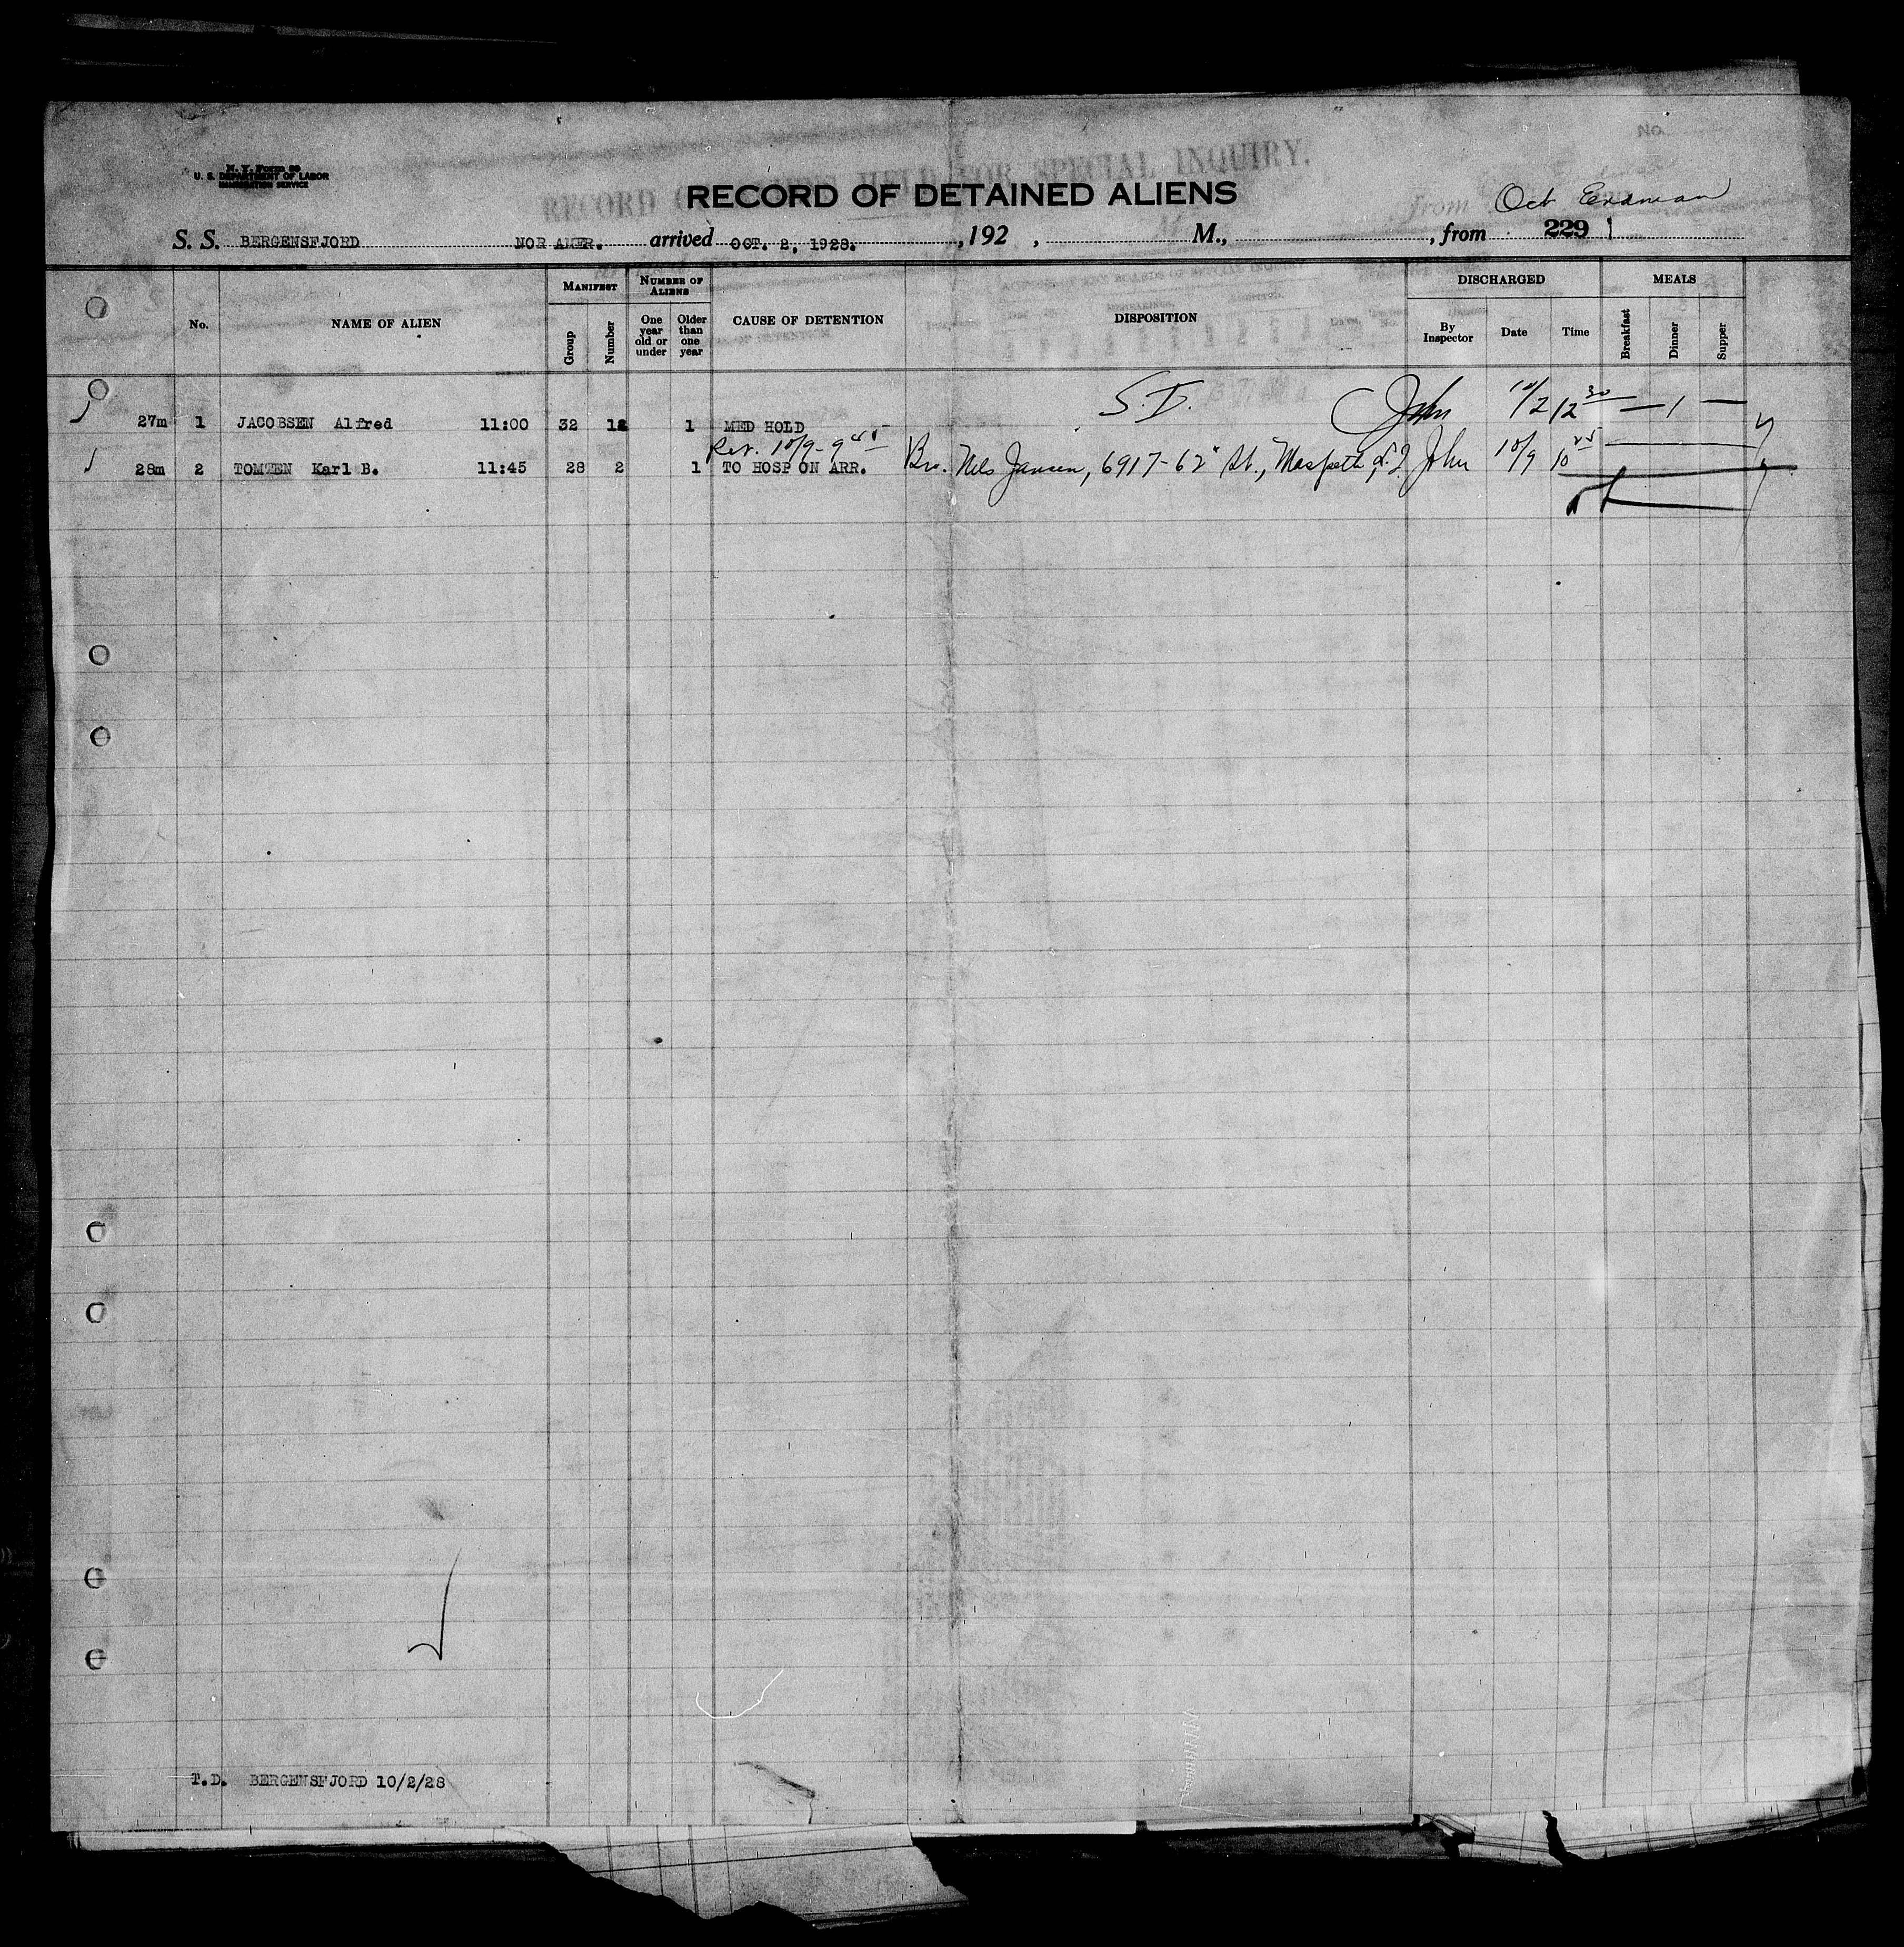 N. Y. Form 99
U. S. DEPARTMENT OF LABOR
IMMIGRATION SERVICE
RECORD OF ALIENS HELD FOR SPECIAL INQUIRY.
No.
RECORD OF DETAINED ALIENS
Oct Erdman
S. S. BERGENSFJORD NOR AMER. arrived OCT. 2, 1928. , 192 , M., , from 229
No. NAME OF ALIEN MANIFEST Group Number NUMBER OF ALIENS One year old or under Older than one year CAUSE OF DETENTION DISPOSITION DISCHARGED By Inspector Date Time MEALS Breakfast Dinner Supper
27m 1 JACOBSEN Alfred 11:00 32 12 1 MED HOLD S.I. John 10/2 12 30 — 1 —
Ret. 10/9 - 9 45
28m 2 TOMZEN Karl B. 11:45 28 2 1 TO HOSP ON ARR. Bro. Nels Jansen, 6917-62" St., Maspeth, L.I. John 10/9 10 25
T.D. BERGENSFJORD 10/2/28